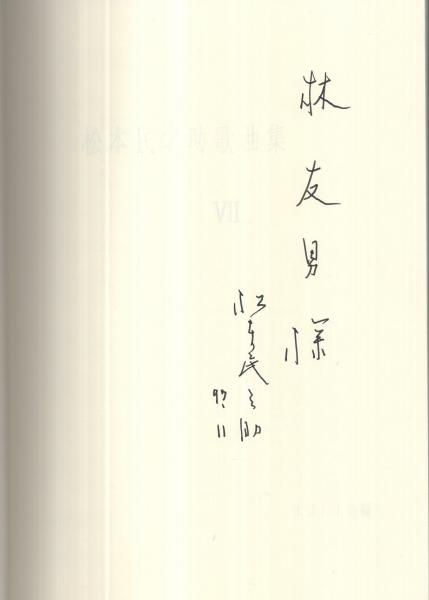 林友男様
松本民之助
97.11
松本民之助歌曲集
VII